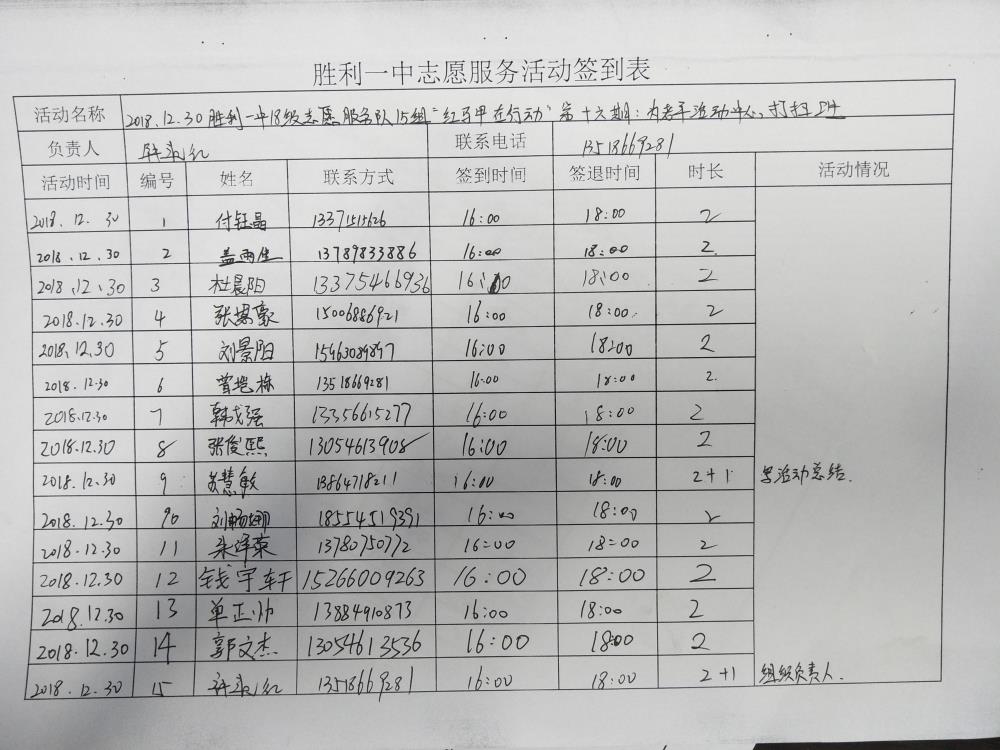 胜利一中志愿服务活动签到表
活动名称 2018.12.30胜利一中18级志愿服务队15组"红马甲在行动"第十六期:为老年活动中心打扫卫生
负责人 联系电话 13518669281
活动时间 编号 姓名 联系方式 签到时间 签退时间 时长 活动情况
2018.12.30 1 付钰晶 13371515626 16:00 18:00 2
2018.12.30 2 盖雨生 13789833886 16:00 18:00 2
2018.12.30 3 杜晨阳 13375466936 16:00 18:00 2
2018.12.30 4 张 豪 15006886921 16:00 18:00 2
2018.12.30 5 刘景阳 16:00 18:00 2
2018.12.30 6 曾 栋 13518669281 16:00 18:00 2
2018.12.30 7 韩成强 13356615277 16:00 18:00 2
2018.12.30 8 张俊熙 13054613908 16:00 18:00 2
2018.12.30 9 苏慧敏 13864718211 16:00 18:00 2+1 写活动总结.
2018.12.30 10 刘畅娜 18554519391 16:00 18:00 2
2018.12.30 11 朱泽荣 13780750772 16:00 18:00 2
2018.12.30 12 钱宇轩 15266009263 16:00 18:00 2
2018.12.30 13 单正帅 13884910873 16:00 18:00 2
2018.12.30 14 郭文杰 13054613536 16:00 18:00 2
2018.12.30 15 13518669281 16:00 18:00 2+1 组织负责人.